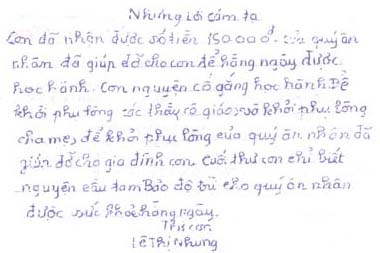 Những lời cám tạ
Con đã nhận được số tiền 150000đ. của quý ân
nhân đã giúp đỡ cho con để hằng ngày được
học hành. Con nguyện cố gắng học hành Để
khỏi phụ lòng các thầy cô giáo, và khỏi phụ lòng
cha mẹ, để khỏi phụ lòng của quý ân nhân đã
giúp đỡ cho gia đình con. Cuối thư con chỉ biết
nguyện cầu tam Bảo độ trì cho quý ân nhân
được sức khỏe hằng ngày.
Thư con
Lê Thị Nhung